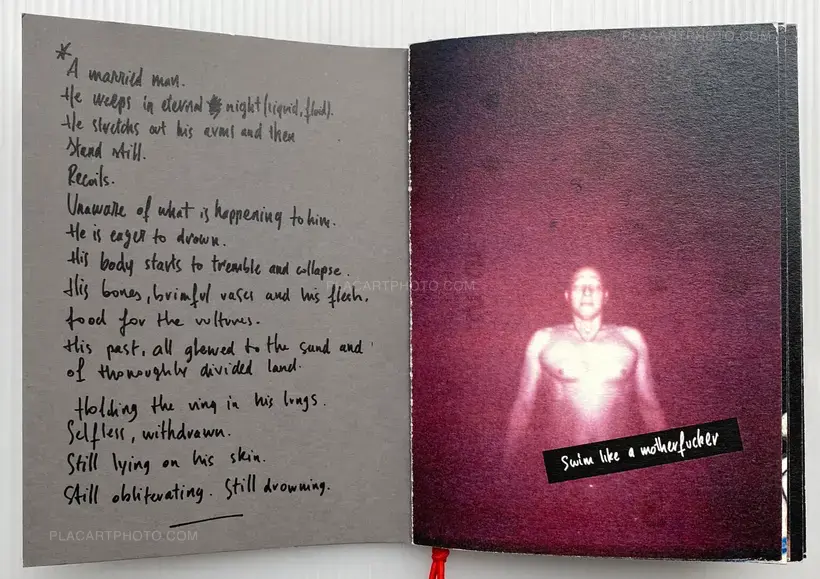 PLACARTPHOTO.COM
*
A married man.
He weeps in eternal night (liquid, fluid).
He stretchs out his arms and then
Stand still.
Recoils.
Unaware of what is happening to him.
He is eager to drown.
His body starts to tremble and collapse.
His bones, brimful vases and his flesh,
food for the vultures.
His past, all glewed to the sand and
of thoroughly divided land.
Holding the ring in his lungs.
Selfless, withdrawn.
Still lying on his skin.
Still obliterating. Still drowning.
PLACARTPHOTO.COM
PLACARTPHOTO.COM
Swim like a motherfucker